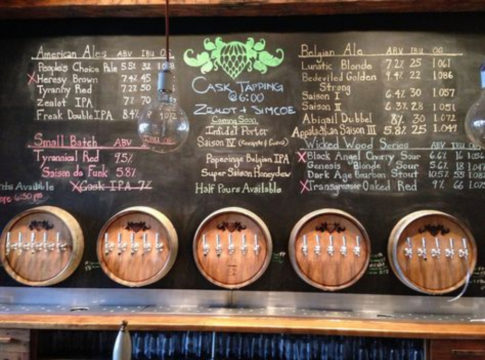 American Ales ABV IBU OG
People's Choice Pale 5.5% 32
X Heresy Brown 7.4% 45
Tyranny Red 7.2% 50
Zealot IPA 7% 70
Freak Double IPA
Small Batch ABV
Tyrannical Red 7.5%
Saison da Funk 5.8%
X Cask IPA 7%
Available
Cask Tapping
@6:00
Zealot + Simcoe
Coming Soon
Infidel Porter
Saison IV
Poperinge Belgian IPA
Super Saison Honeydew
Half Pours Available
Belgian Ale ABV IBU OG
Lunatic Blonde 7.2% 25 1.061
Bedeviled Golden 9.4% 22 1.086
Strong
Saison I 6.4% 30 1.057
Saison II 6.3% 28 1.051
Abigail Dubbel 8% 30 1.072
Appalachian Saison III 5.8% 25 1.049
Wicked Wood Series ABV IBU OG
X Black Angel Cherry Sour 6.6% 16
Genesis "Blonde" Sour 5.6% 18
Dark Age Bourbon Stout 10.5% 55
X Transamour Oaked Red 9% 66